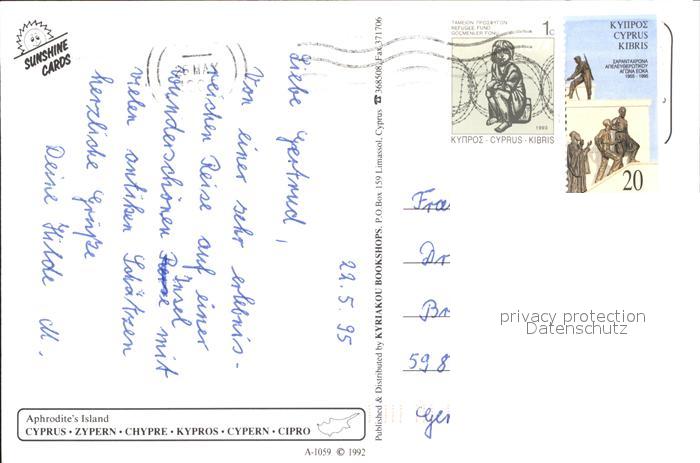 SUNSHINE
CARDS
MAY
22.5.95
Liebe Gertrud,
Von einer sehr erlebnis-
reichen Reise auf einer
wunderschönen Insel mit
vielen antiken Schätzen
herzliche Grüße
Deine Hilde M.
Aphrodite's Island
CYPRUS • ZYPERN • CHYPRE • KYPROS • CYPERN • CIPRO
A-1059 © 1992
Published & Distributed by KYRIAKOU BOOKSHOPS, P.O.Box 159 Limassol, Cyprus ☎ 368508, Fax 371706
ΤΑΜΕΙΟΝ ΠΡΟΣΦΥΓΩΝ
REFUGEE FUND
GÖÇMENLER FONU
1c
1993
ΚΥΠΡΟΣ - CYPRUS - KIBRIS
ΚΥΠΡΟΣ
CYPRUS
KIBRIS
ΣΑΡΑΝΤΑΧΡΟΝΑ
ΑΠΕΛΕΥΘΕΡΩΤΙΚΟΥ
ΑΓΩΝΑ ΕΟΚΑ
1955 - 1995
20
Fra
Dr
Br
598
Ger
privacy protection
Datenschutz